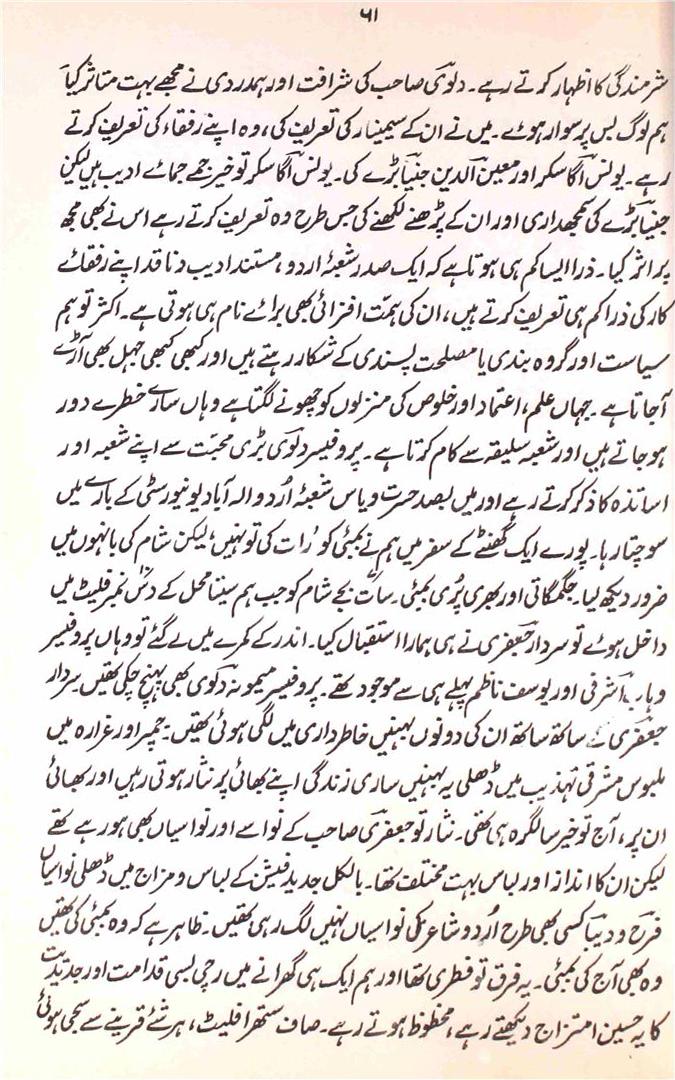 ۶۱
شرمندگی کا اظہار کرتے رہے۔ دلوی صاحب کی شرافت اور ہمدردی نے مجھے بہت متاثر کیا
ہم لوگ بس پر سوار ہوئے۔ میں نے ان کے سیمینار کی تعریف کی، وہ اپنے رفقاء کی تعریف کرتے
رہے۔ یونس اگاسکر اور معین الدین جنیابڑے کی۔ یونس اگاسکر تو خیر جمے جمائے ادیب ہیں لیکن
جنیابڑے کی سمجھداری اور ان کے پڑھنے لکھنے کی جس طرح وہ تعریف کرتے رہے اس نے بھی مجھ
پر اثر کیا۔ ذرا ایسا کم ہی ہوتا ہے کہ ایک صدر شعبۂ اردو، مستند ادیب و ناقد اپنے رفقائے
کار کی ذرا کم ہی تعریف کرتے ہیں، ان کی ہمّت افزائی بھی برائے نام ہی ہوتی ہے۔ اکثر تو ہم
سیاست اور گروہ بندی یا مصلحت پسندی کے شکار رہتے ہیں اور کبھی کبھی جہل بھی آڑے
آجاتا ہے۔ جہاں علم، اعتماد اور خلوص کی منزلوں کو چھونے لگتا ہے وہاں سارے خطرے دور
ہوجاتے ہیں اور شعبہ سلیقہ سے کام کرتا ہے۔ پروفیسر دلوی بڑی محبّت سے اپنے شعبہ اور
اساتذہ کا ذکر کرتے رہے اور میں بصد حسرت ویاس شعبۂ اُردو الہ آباد یونیورسٹی کے بارے میں
سوچتا رہا۔ پورے ایک گھنٹے کے سفر میں ہم نے بمبئی کو رات کی تو نہیں، لیکن شام کی بانہوں میں
ضرور دیکھ لیا۔ جگمگاتی اور بھری پُری بمبئی۔ سات بجے شام کو جب ہم سیتا محل کے دس نمبر فلیٹ میں
داخل ہوئے تو سردار جعفری نے ہی ہمارا استقبال کیا۔ اندر کے کمرے میں لے گئے تو وہاں پروفیسر
وہاب اشرفی اور یوسف ناظم پہلے ہی سے موجود تھے۔ پروفیسر میمونہ دلوی بھی پہنچ چکی تھیں۔ سردار
جعفری کے ساتھ ساتھ ان کی دونوں بہنیں خاطر داری میں لگی ہوئی تھیں۔ جمپر اور غرارہ میں
ملبوس مشرقی تہذیب میں ڈھلی یہ بہنیں ساری زندگی اپنے بھائی پر نثار ہوتی رہیں اور بھائی
ان پر، آج تو خیر سالگرہ ہی تھی۔ نثار تو جعفری صاحب کے نواسے اور نواسیاں بھی ہورہے تھے
لیکن ان کا انداز اور لباس بہت مختلف تھا۔ بالکل جدید فیشن کے لباس و مزاج میں ڈھلی نواسیاں
فرح و دیبا کسی بھی طرح اُردو شاعر کی نواسیاں نہیں لگ رہی تھیں۔ ظاہر ہے کہ وہ بمبئی کی تھیں
وہ بھی آج کی بمبئی۔ یہ فرق تو فطری تھا اور ہم ایک ہی گھرانے میں رچی بسی قدامت اور جدیدیت
کا یہ حسین امتزاج دیکھتے رہے، محظوظ ہوتے رہے۔ صاف ستھرا فلیٹ، ہر شئے قرینے سے سجی ہوئی